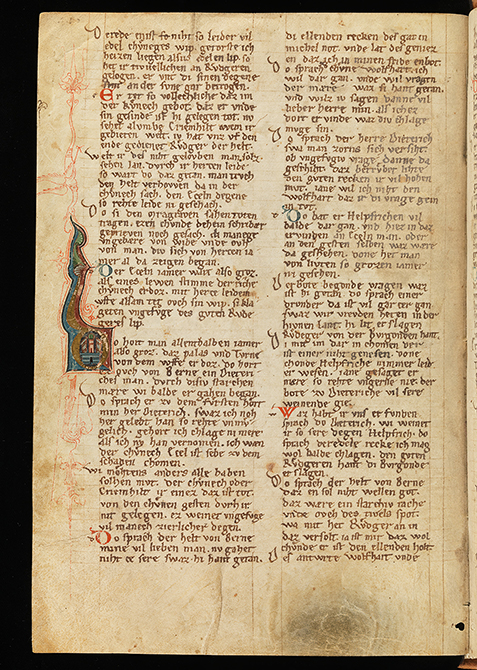 D erede enist so niht so leider vil
edel chuneges wip. getorste ich
heizen liegen alsus edelen lip. so
het ir tivvellichen an Rvdgeren
gelogen. er unt di sinen degene
sint an der svne gar betrogen.
Er tet so vollechliche daz im
der kunech gebot. daz er unde
sin gesinde ist hi gelegen tot. nu
seht al umbe Criemhilt wem ir
gebieten welt. iv hat unz uf den
ende gedienet Rvdger der helt.
W elt ir des niht gelouben man sol z
sehen lan. durch ir herzen leide
so wart do daz getan. man truch
den helt verhowen da in der
chunech sach. den Ezeln degene
so rehte leide ni geschach.
D o si den
tragen. ezn chunde dehein schriber
gebrieven noch gesagen. di manege
ungebare von wibe unde ouch
von man. div sich von herzen ia
mer al da zeigen began.
Der Ezeln iamer wart also groz.
als eines lewen stimme der riche
chunech erdoz. mit herze leidem
wffe alsam tet ouch sin wip. si kla
geten ungefuge des guten Rvde
geres lip.
Do hort man allenthalben iamer
also groz. daz palas und turne
von dem wffe er doz. do hort
ez ouch von Berne ein Dietri
ches man. durch disiv starchen
mære wi balde er gahen began.
D o sprach er zv dem fursten hort
min her Dieterich. swaz ich noh
her gelebt han so rehte unmu
gelich. gehort ich chlage ni mere
als ich nu han vernomen. ich wæn
der chunech Ecel ist selbe zv dem
schaden chomen.
W i mohtens anders alle haben
solhen mut. der chunech oder
Criemhilt ir einez daz ist tot.
von den chunen gesten durch ir
nit gelegen. ez weinet ungefuge
vil manech zierlicher degen.
Do sprach der helt von Berne
mine vil lieben man. nu gahet
niht ze sere swaz hi hant getan.
di ellenden recken des gat in
michel not. unde lat des geniezen
en daz ich in minen fride enbot.
D o sprach der chune Wolfhart. ich
wil dar gan. unde wil vragen
der mære waz si hant getan.
und wilz iv sagen danne vil
lieber herre min. als ich ez
dort er vinde waz div chlage
muge sin.
D o sprach der herre Dieterich
swa man zorns sich versiht
ob ungefugiv vrage danne da
geschiht. daz betrubet lihte
den guten recken ir mut.
iane wil ich niht den
Wolfhart daz ir di vrage gein
in tut.
Do bat er Helpfrichen vil
balde dar gan. und hiez in daz
ervinden an Eceln man. oder
an den gesten selben waz wære
da geschehen. done het man
von livten so grozen iamer
ni gesehen.
D er bote begonde vragen waz
ist hi getan. do sprach einer
drunder da ist vil gar zer gan.
swaz wir vreuden heten in der
hivnen lant. hi lit er slagen
Rvdeger von der Burgonden hant.
D i mit im dar in chomen der
ist einer niht genesen. done
chonde Helpfriche nimmer leider
wesen. iane gesaget er
mære so rehte ungerne nie. der
bote zv Dieteriche vil sere
weinende gie.
Waz habt ir uns er funden
sprach do Dieterich. wi weinet
ir so sere degen Helpfrich. do
sprach der edele recke ich mag
wol balde chlagen. den guten
Rvdgeren hant di Burgonde
er slagen.
D o sprach der helt von Berne
daz en sol niht wellen got.
daz wære ein starchiv rache
unde ouch des tivels spot.
wa mit het Rvdger an in
daz verscholt. ia ist mir daz wol
chunde er ist den ellenden holt.
D es antwrte Wolfhart unde